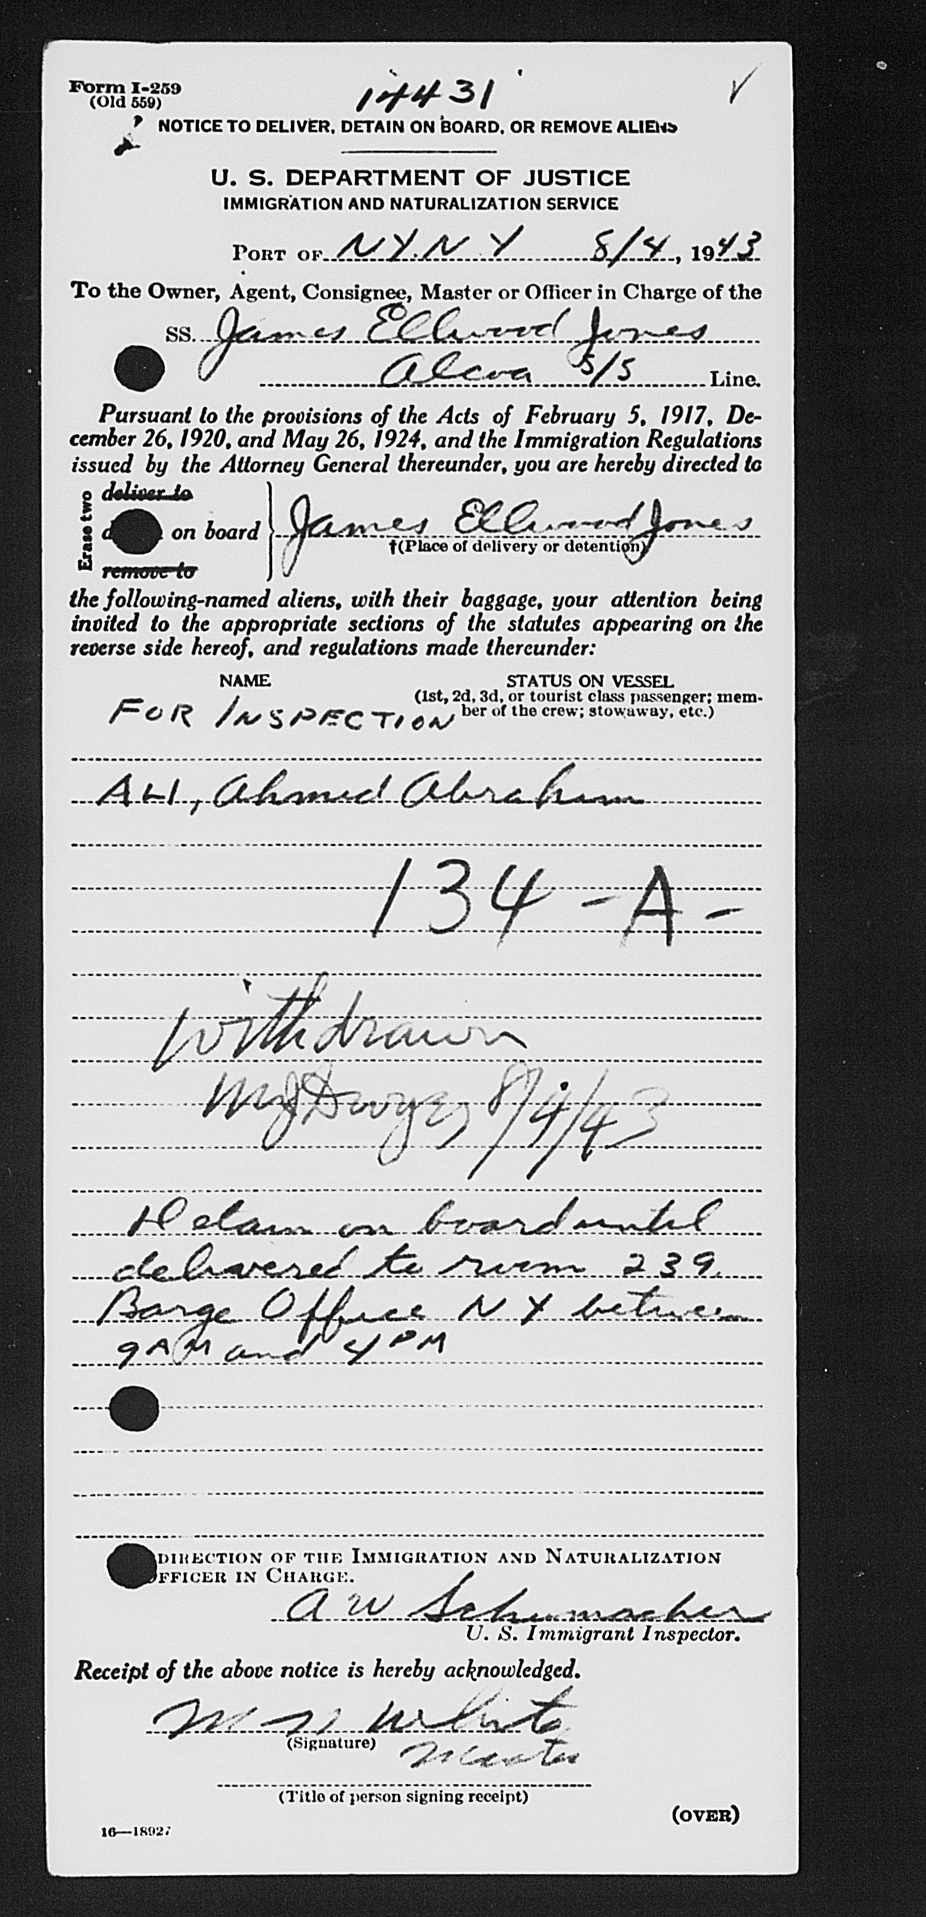 Form I-259
(Old 559)
14431
NOTICE TO DELIVER, DETAIN ON BOARD, OR REMOVE ALIENS
U. S. DEPARTMENT OF JUSTICE
IMMIGRATION AND NATURALIZATION SERVICE
PORT OF N.Y. N.Y 8/4, 1943
To the Owner, Agent, Consignee, Master or Officer in Charge of the
SS. James Ellwood Jones
Alcoa S/S Line.
Pursuant to the provisions of the Acts of February 5, 1917, De-
cember 26, 1920, and May 26, 1924, and the Immigration Regulations
issued by the Attorney General thereunder, you are hereby directed to
Erase two
deliver to
on board James Ellwood Jones
†(Place of delivery or detention)
remove to
the following-named aliens, with their baggage, your attention being
invited to the appropriate sections of the statutes appearing on the
reverse side hereof, and regulations made thereunder:
NAME STATUS ON VESSEL
(1st, 2d, 3d, or tourist class passenger; mem-
ber of the crew; stowaway, etc.)
FOR INSPECTION
ALI, Ahmed Abraham
134 - A -
Withdrawn
MJ Dwyer 8/4/43
Detain on board until
delivered to room 239
Barge Office N Y between
9 AM and 4 PM
DIRECTION OF THE IMMIGRATION AND NATURALIZATION
OFFICER IN CHARGE.
A W Schumacher
U. S. Immigrant Inspector.
Receipt of the above notice is hereby acknowledged.
White
(Signature)
Master
(Title of person signing receipt)
(OVER)
16—18927